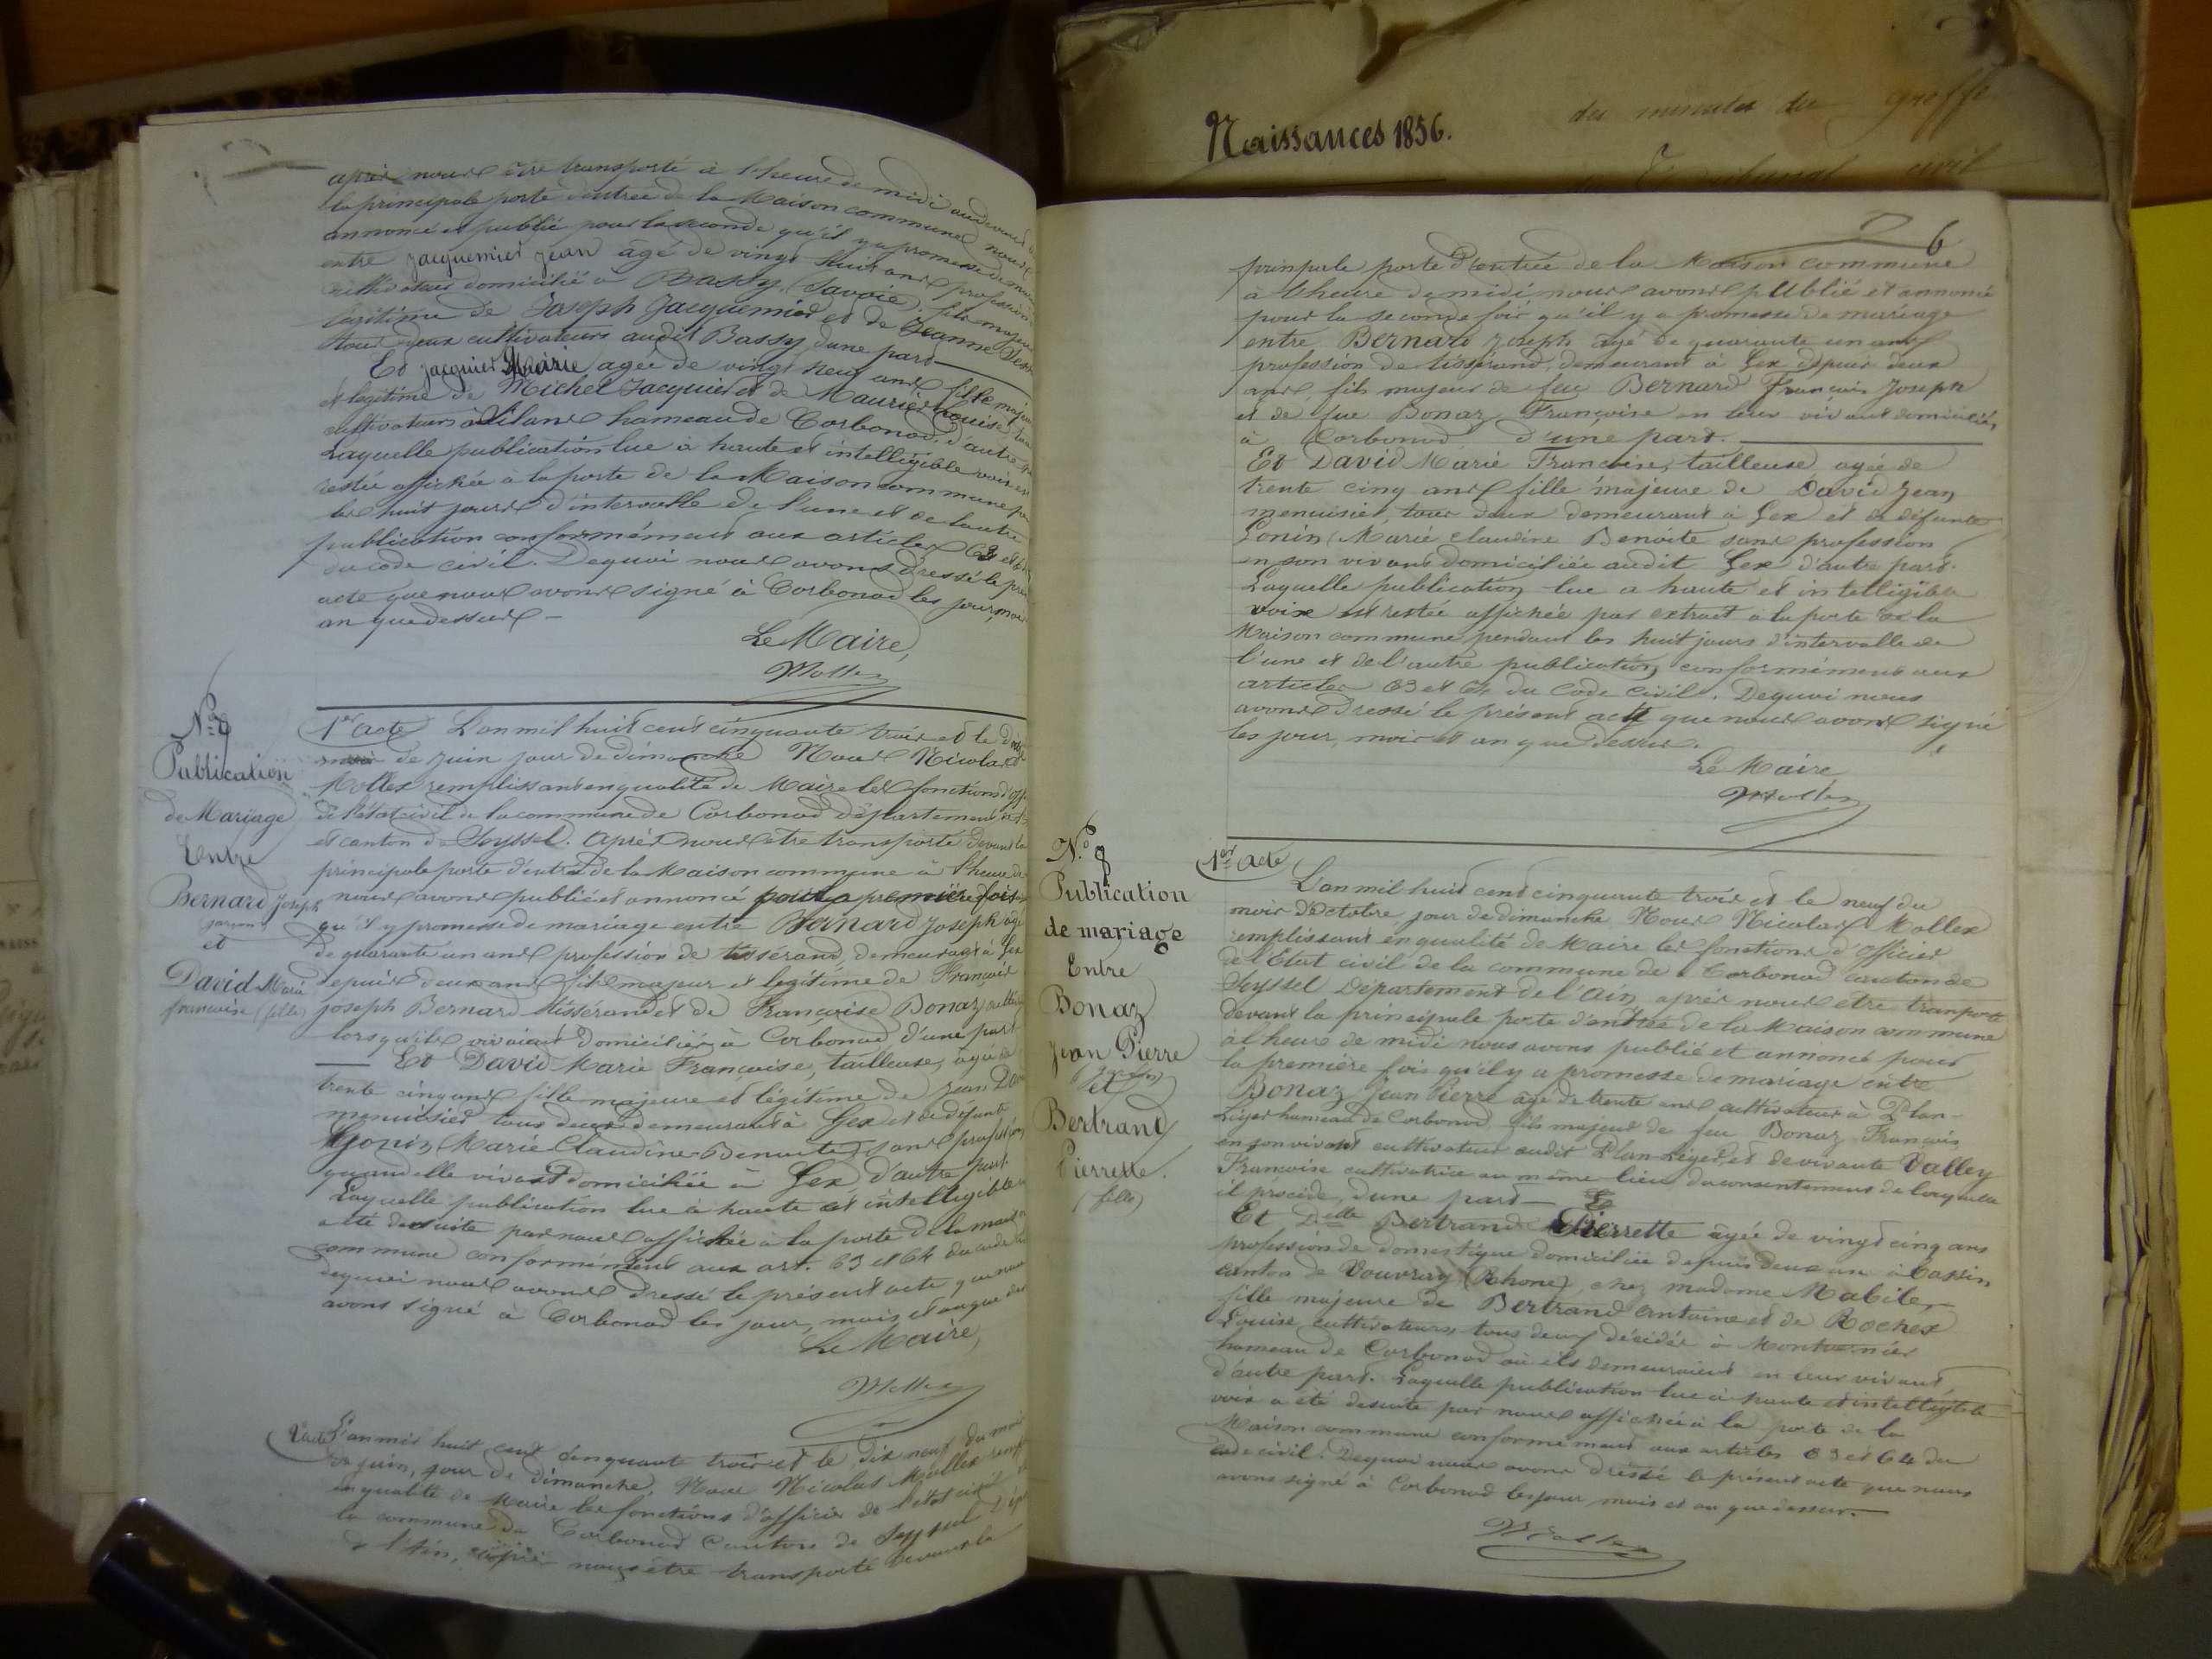 après nous être transporté à l'heure de midi audevant
la principale porte d'entrée de la Maison commune nous
annoncé et publié pour la seconde qu'il y a promesse de
entre Jacquemier Jean âgé de vingt huit ans profession
cultivateur domicilié à Bassy (Savoie) fils majeur
légitime de Joseph Jacquemier et de Jeanne
tous deux cultivateurs audit Bassy, d'une part
Et Jacquier Marie agée de vingt neuf ans fille majeure
et légitime de Michel Jacquier et de Maurier Louise
cultivateurs à Silans hameau de Corbonod. d'autre
Laquelle publication lue à haute et intelligible voix
restée affichée à la porte de la Maison commune
les huit jours d'intervalle de l'une et de l'autre
publication conformément aux articles 63 et
du code civil. Dequoi nous avons dressé le
acte que nous avons signé à Corbonod les jour, mois
an que dessus
Le Maire,
Mollex
No 8
Publication
de Mariage
Entre
Bernard Joseph
garçon
et
David Marie
francoise (fille)
1er acte L'an mil huit cent cinquante trois et le
de Juin jour de dimanche Nous Nicolas
Mollex remplissant en qualité de Maire les fonctions d'
de l'état civil de la commune de Corbonod département
et canton de Seyssel. Après nous etre transporté devant la
principale porte d'entrée de la Maison commune à l'heure de
nous avons publié et annoncé pour la première fois
qu'il y promesse de mariage entre Bernard Joseph agé
de quarante un ans profession de tisserand, demeurant à Gex
depuis deux ans fils majeur et legitime de François
Joseph Bernard tisserand et de Françoise Bonaz
lorsqu'ils vivaient domiciliés à Corbonod d'une part
Et David Marie Françoise, tailleuse, agée de
trente cinq ans fille majeure et légitime de Jean
menuisier tous deux demeurant à Gex et de défunte
Gonin Marie Claudine Benoite sans profession
quand elle vivait domiciliée à Gex d'autre part.
Laquelle publication lue à haute et intelligible
a été de suite par nous affichée à la porte de la
commune conformément aux art. 63 et 64 du code
dequoi nous avons dressé le présent acte que nous
avons signé à Corbonod les jour, mois et an que
Le Maire,
Mollex
L'an mil huit cent cinquante trois et le dix neuf du mois
de juin, jour de dimanche, Nous Nicolas Mollex
en qualité de Maire les fonctions d'officier de l'état civil
la commune de Corbonod canton de Seyssel
de l'Ain, après nous être transporté devant la
Naissances 1856.
des minutes du greffe
Tribunal civil
6
principale porte d'entrée de la Maison commune
à l'heure de midi nous avons publié et annoncé
pour la seconde fois qu'il y a promesse de mariage
entre Bernard Joseph agé de quarante un ans
profession de tisserand, demeurant à Gex depuis deux
ans, fils majeur de feu Bernard François Joseph
et de fue Bonaz Françoise en leur vivant domiciliés
à Corbonod d'une part.
Et David Marie Francoise, tailleuse agée de
trente cinq ans fille majeure de David Jean
menuisier, tous deux demeurant à Gex et de défunte
Gonin Marie Claudine Benoite sans profession
en son vivant domiciliée audit Gex d'autre part.
Laquelle publication lue a haute et intelligible
voix est restée affichée par extrait à la porte de la
Maison commune pendant les huit jours d'intervalle de
l'une et de l'autre publication, conformément aux
articles 63 et 64 du Code Civil. Dequoi nous
avons dressé le présent acte que nous avons signé
les jour, mois et an que dessus.
Le Maire
Mollex
No 9
Publication
de mariage
Entre
Bonaz
Jean Pierre
et
Bertrand
Pierrette.
(fille)
1er Acte
L'an mil huit cent cinquante trois et le neuf du
mois d'Octobre, jour de dimanche Nous Nicolas Mollex
remplissant en qualité de Maire les fonctions d'officier
de l'Etat civil de la commune de Corbonod canton de
Seyssel Département de l'Ain, après nous etre transporté
devant la principale porte d'entrée de la Maison commune
à l'heure de midi nous avons publié et annoncé pour
la première fois qu'il y a promesse de mariage entre
Bonaz Jean Pierre agé de trente ans cultivateur à Plan-
Léger hameau de Corbonod fils majeur de feu Bonaz François
en son vivant cultivateur audit Plan-Léger, et de vivante Valley
Francoise cultivatrice au même lieu du consentement de laquelle
il procède, d'une part
Et Delle Bertrand Pierrette agée de vingt cinq ans
profession de domestique domiciliée depuis deux an à
canton de Vouvray (Rhone) chez madame Mabile,
fille majeure de Bertrand Antoine et de Rochex
Louise cultivateurs, tous deux décédés à
hameau de Corbonod où ils demeuraient en leur vivant
d'autre part. Laquelle publication lue à haute et intelligible
voix a été desuite par nous affichée à la porte de la
Maison commune conformément aux articles 63 et 64 du
code civil. Dequoi nous avons dressé le présent acte que nous
avons signé à Corbonod les jour, mois et an que dessus.
Mollex